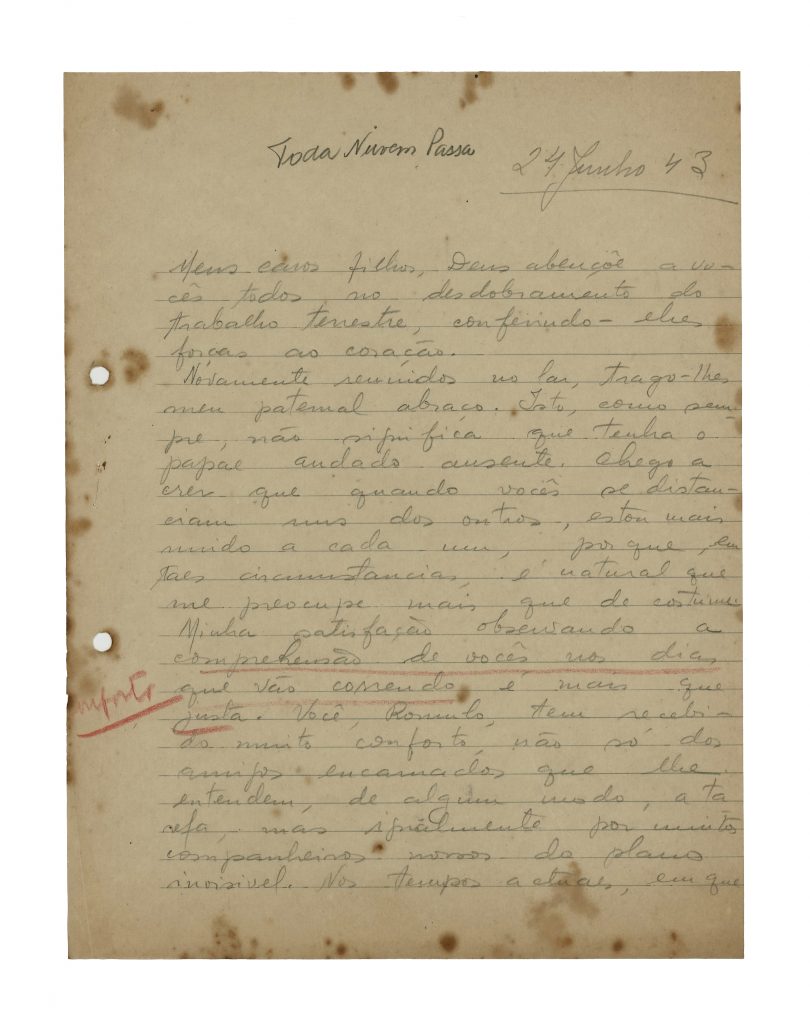 Toda Nuvem Passa
24 Junho 43
Meus caros filhos, Deus abençõe a vo-
cês todos no desdobramento do
trabalho terrestre, conferindo-lhes
forças ao coração.
Novamente reunidos no lar, trago-lhes
meu paternal abraço. Isto, como sem-
pre, não significa que tenha o
papae andado ausente. Chego a
crer que quando vocês se distan-
ciam uns dos outros, estou mais
unido a cada um, porque, em
taes circumstancias, é natural que
me preocupe mais que de costume.
Minha satisfação observando a
comprehensão de vocês nos dias
que vão correndo é mais que
justa. Você, Romulo, tem recebi-
do muito conforto, não só dos
amigos encarnados que lhe
entendem, de algum modo, a ta
refa, mas igualmente por muitos
companheiros nossos do plano
invisivel. Nos tempos actuaes, em que